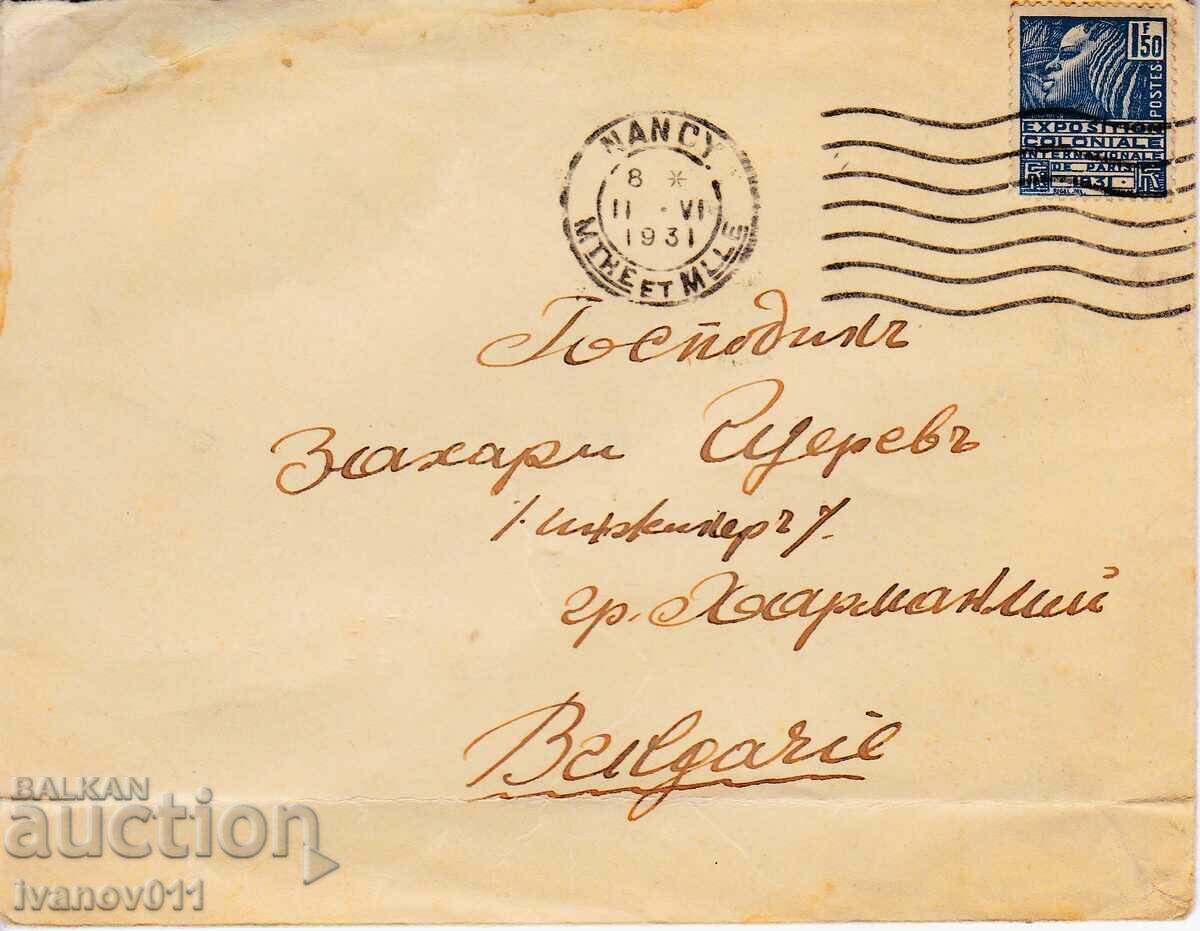 1F50
POSTES
EXPOSITION
COLONIALE
INTERNATIONALE
DE PARIS
1931
NANCY
8 *
11 - VI
1931
MTHE ET MLLE
Господинъ
Захари Щеревъ
/. инженеръ /.
гр. Харманлий
Bulgarie
BALKAN
auction
ivanov011